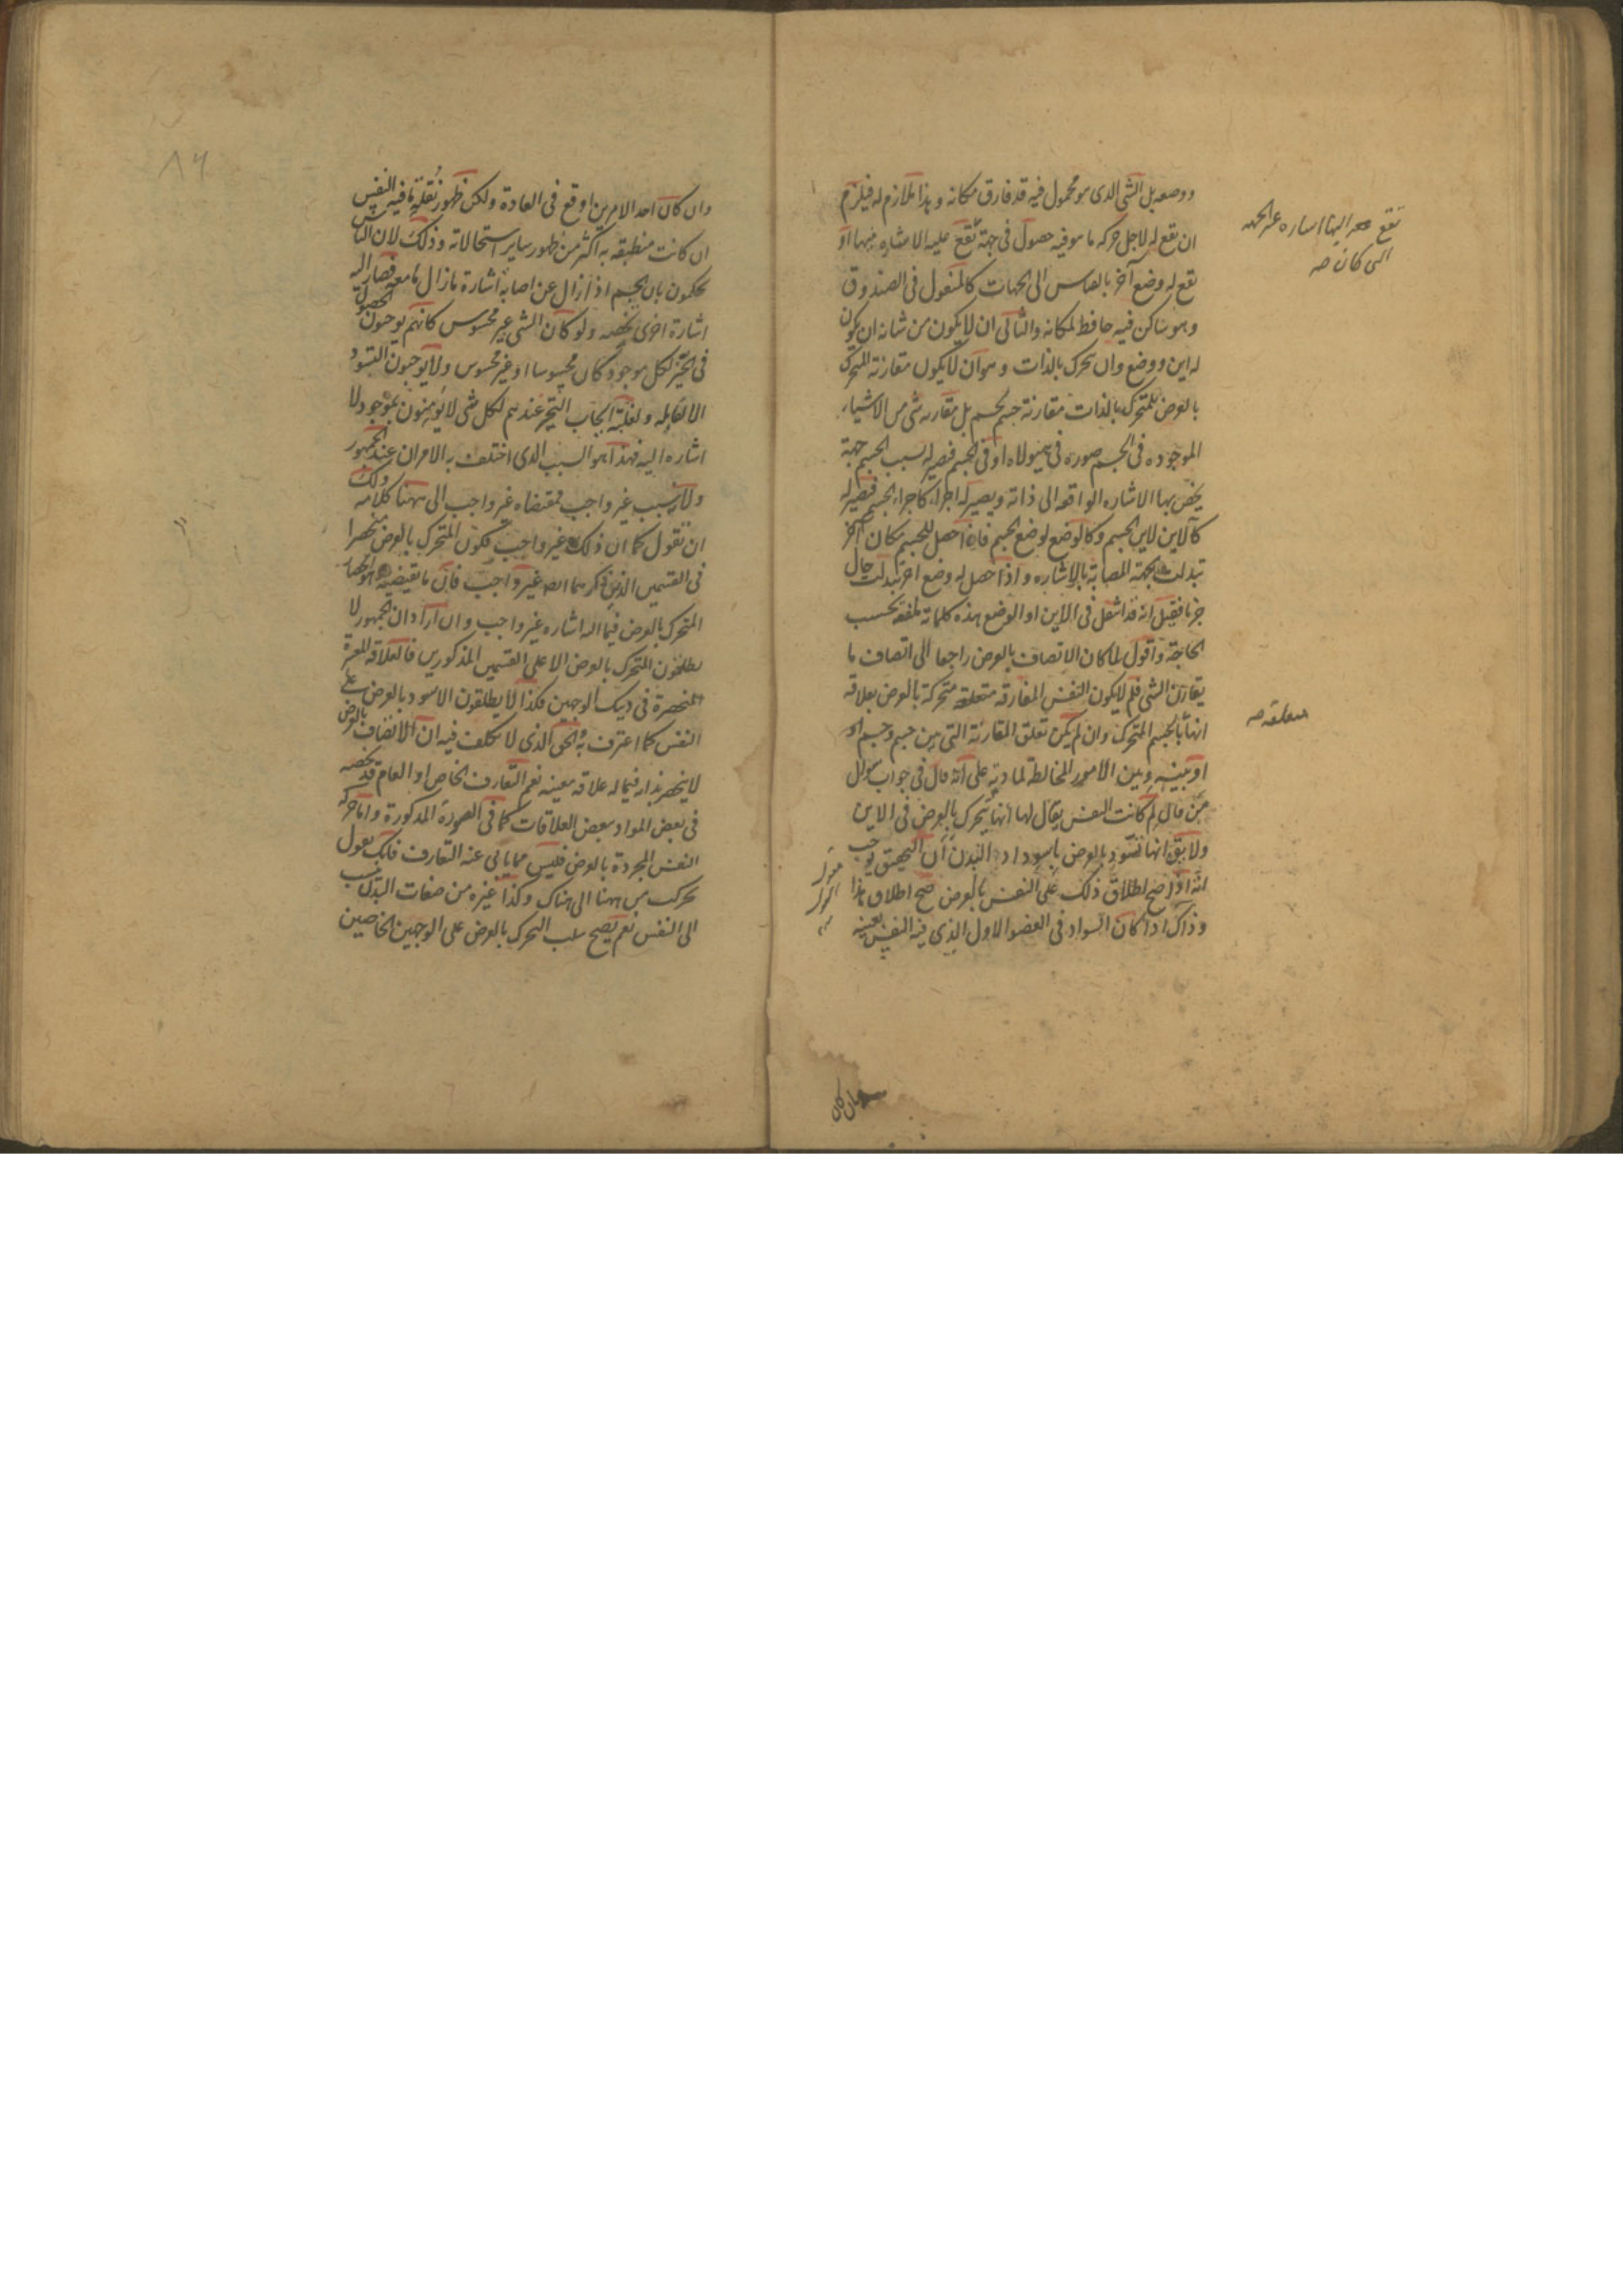 ووضعه بل الشی الذی هو محمول فیه قد فارق مکانه وهذا ملازم له فیلزم
ان تقع له لاجل حرکه ما هو فیه حصول فی جهة تقع علیه الاشاره فیها او
تقع له وضع آخر بالقیاس الی الجهات کالمنقول فی الصندوق
وهو ساکن فیه حافظ لمکانه والثانی ان لا یکون من شانه ان یکون
له این ووضع وان تحرک بالذات وهو ان لا یکون مقارنة المتحرک
بالعرض للمتحرک بالذات مقارنة جسم لجسم بل مقارنه شی من الاشیاء
الموجوده فی الجسم صوره فی هیولاه او فی الجسم فیصیر له بسبب الجسم جهة
یخص بها الاشاره الواقعه الی ذاته ویصیر له اجزاء کاجزاء الجسم فیصیر له
کالاین لاین الجسم وکالوضع لوضع الجسم فاذا حصل للجسم مکان آخر
تبدلت الجهة المصابة بالاشاره واذا حصل له وضع اخر تبدلت حال
جزء فقیل انه قد انتقل فی الاین او الوضع هذه کلماته بلفقه بحسب
الحاجة واقول لما کان الاتصاف بالعرض راجعا الی اتصاف ما
یقارن الشی فلم لا یکون النفس المفارقه متعلقه متحرکة بالعرض بعلاقه
انها بالجسم المتحرک وان لم یکن تعلق المقارنة التی بین جسم وجسم او
او بینه وبین الامور المخالطة لمادیة علی انه قال فی جواب سوال
من قال لم کانت النفس یقال لها انها یتحرک بالعرض فی الاین
ولا یق انها تسود بالعرض باسوداد البدن ان التحقیق یوجب
انه اذا صح اطلاق ذلک علی النفس بالعرض صح اطلاق هذا
وذاک اذا کان السواد فی العضو الاول الذی فیه النفس بعینه
تقع الیها اشاره غیر الجهه
التی کان صه
متعلقه صه
وان کان احد الامرین اوقع فی العادة ولکن ظهور نقلة ما فیه النفس
ان کانت منطبقه به اکثر من ظهور سایر استحالاته وذلک لان الناس
یحکمون بان الجسم اذا زال عن اصابة اشارة ما زال ما معه فصار الیه
اشارة اخری تخصه ولو کان الشی غیر محسوس کانهم یوجبون الحصول
فی الحیز لکل موجود کان محسوسا او غیر محسوس ولا یوجبون التسود
الا لقابله ولغلبة ایجاب التحیز عندهم لکل شی لا یؤمنون بموجود لا
اشاره الیه فهذا هو السبب الذی اختلف به الامران عند الجمهور
ولانه بسبب غیر واجب فمقتضاه غیر واجب الی ههنا کلامه ولک
ان تقول کما ان ذلک غیر واجب فکون المتحرک بالعرض منحصرا
فی القسمین الذین ذکرهما ایضا غیر واجب فان ما یقتضیه هو انحصار
المتحرک بالعرض فیما الیه اشاره غیر واجب وان اراد ان الجمهور لا
یطلقون المتحرک بالعرض الا علی القسمین المذکورین فالعلاقة المعتبرة
منحصرة فی ذینک الوجهین فکذا لا یطلقون الاسود بالعرض علی
النفس کما اعترف به والحق الذی لا تکلف فیه ان الاتصاف بالعرض
لا ینحصر بذاته فیما له علاقه معینه نعم التعارف الخاص او العام قد یخصه
فی بعض المواد ببعض العلاقات کما فی الصورة المذکورة واما حرکة
النفس المجردة بالعرض فلیس مما یابی عنه التعارف فانک تقول
تحرکت من ههنا الی هناک وکذا غیره من صفات البدن ینسب
الی النفس نعم یصح سلب التحرک بالعرض علی الوجهین الخاصین